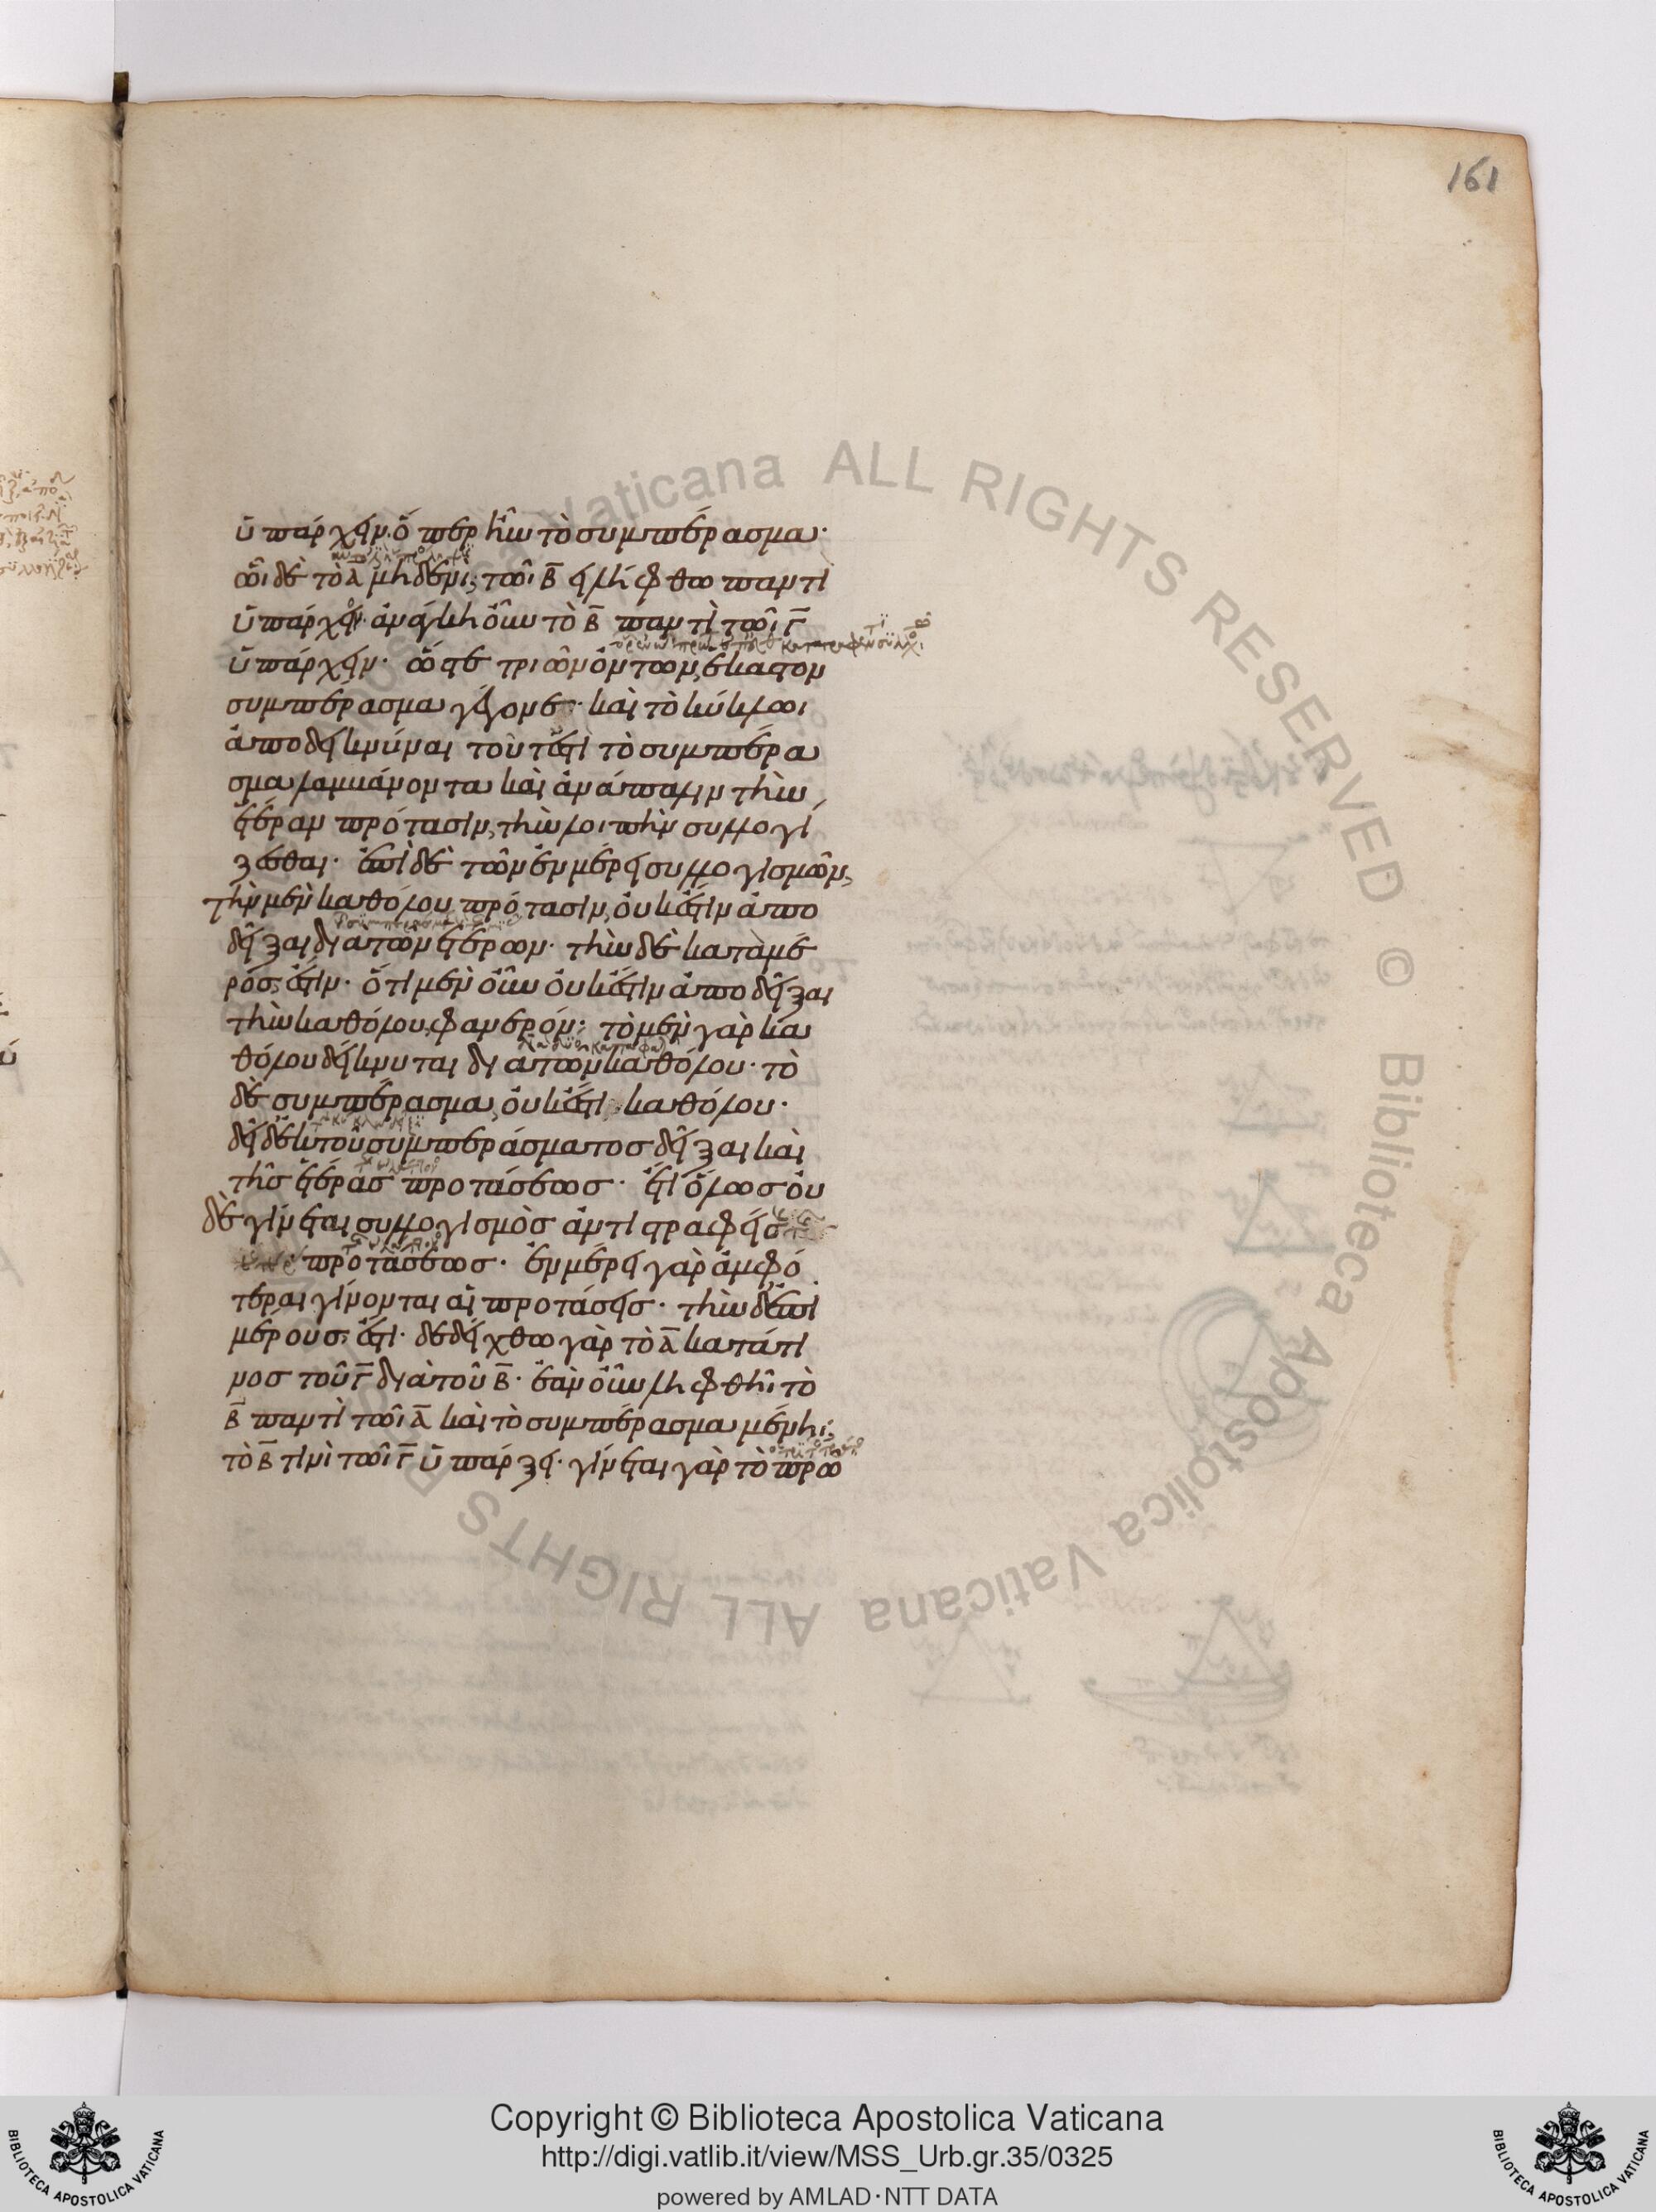 161
ὑπάρχειν· ὅπερ ἦν τὸ συμπέρασμα·
ὧι δὲ τὸ Α μηδενὶ, τῶι Β εἰλήφθω παντὶ
ὑπάρχειν· ἀνάγκη οὖν τὸ Β παντὶ τῶι Γ
ὑπάρχειν· ὥστε τριῶν ὄντων, ἕκαστον
συμπέρασμα γέγονε· καὶ τὸ κύκλωι
ἀποδεικνύναι τοῦτέστὶ τὸ συμπέρα
σμα λαμβάνοντα καὶ ἀνάπαλιν τὴν
ἑτέραν πρότασιν, τὴν λοιπὴν συλλογί
ζεσθαι· ἐπὶ δὲ τῶν ἐν μέρει συλλογισμῶν,
τὴν μὲν καθόλου πρότασιν, οὐκ ἔστιν ἀπο
δεῖξαι διὰ τῶν ἑτέρων· τὴν δὲ κατὰ μέ
ρος, ἔστιν· ὅτι μὲν οὖν οὐκ ἔστιν ἀποδεῖξαι
τὴν καθόλου, φανερόν· τὸ μὲν γὰρ κα
θόλου δείκνυται διὰ τῶν καθόλου· τὸ
δὲ συμπέρασμα, οὐκ ἔστι καθόλου·
δεῖ δ' ἐκ τοῦ συμπεράσματος δεῖξαι καὶ
τῆς ἑτέρας προτάσεως· ἔτι ὅλως οὐ
δὲ γίνεται συλλογισμὸς ἀντιστραφείσ
προτάσεως· ἐν μέρει γὰρ ἀμφό
τεραι γίνονται αἱ προτάσεις· τὴν δ' ἐπὶ
μέρους, ἔστι· δεδείχθω γὰρ τὸ Α κατά τι
νος τοῦ Γ διὰ τοῦ Β· ἐὰν οὖν ληφθῆι τὸ
Β παντὶ τῶι Α καὶ τὸ συμπέρασμα μένηι,
τὸ Β τινὶ τῶι Γ ὑπάρξει· γίνεται γὰρ τὸ πρῶ
ALL RIGHTS RESERVED © Biblioteca Apostolica Vaticana ALL RIGHTS
Copyright © Biblioteca Apostolica Vaticana
http://digi.vatlib.it/view/MSS_Urb.gr.35/0325
powered by AMLAD·NTT DATA
BIBLIOTECA APOSTOLICA VATICANA
BIBLIOTECA APOSTOLICA VATICANA